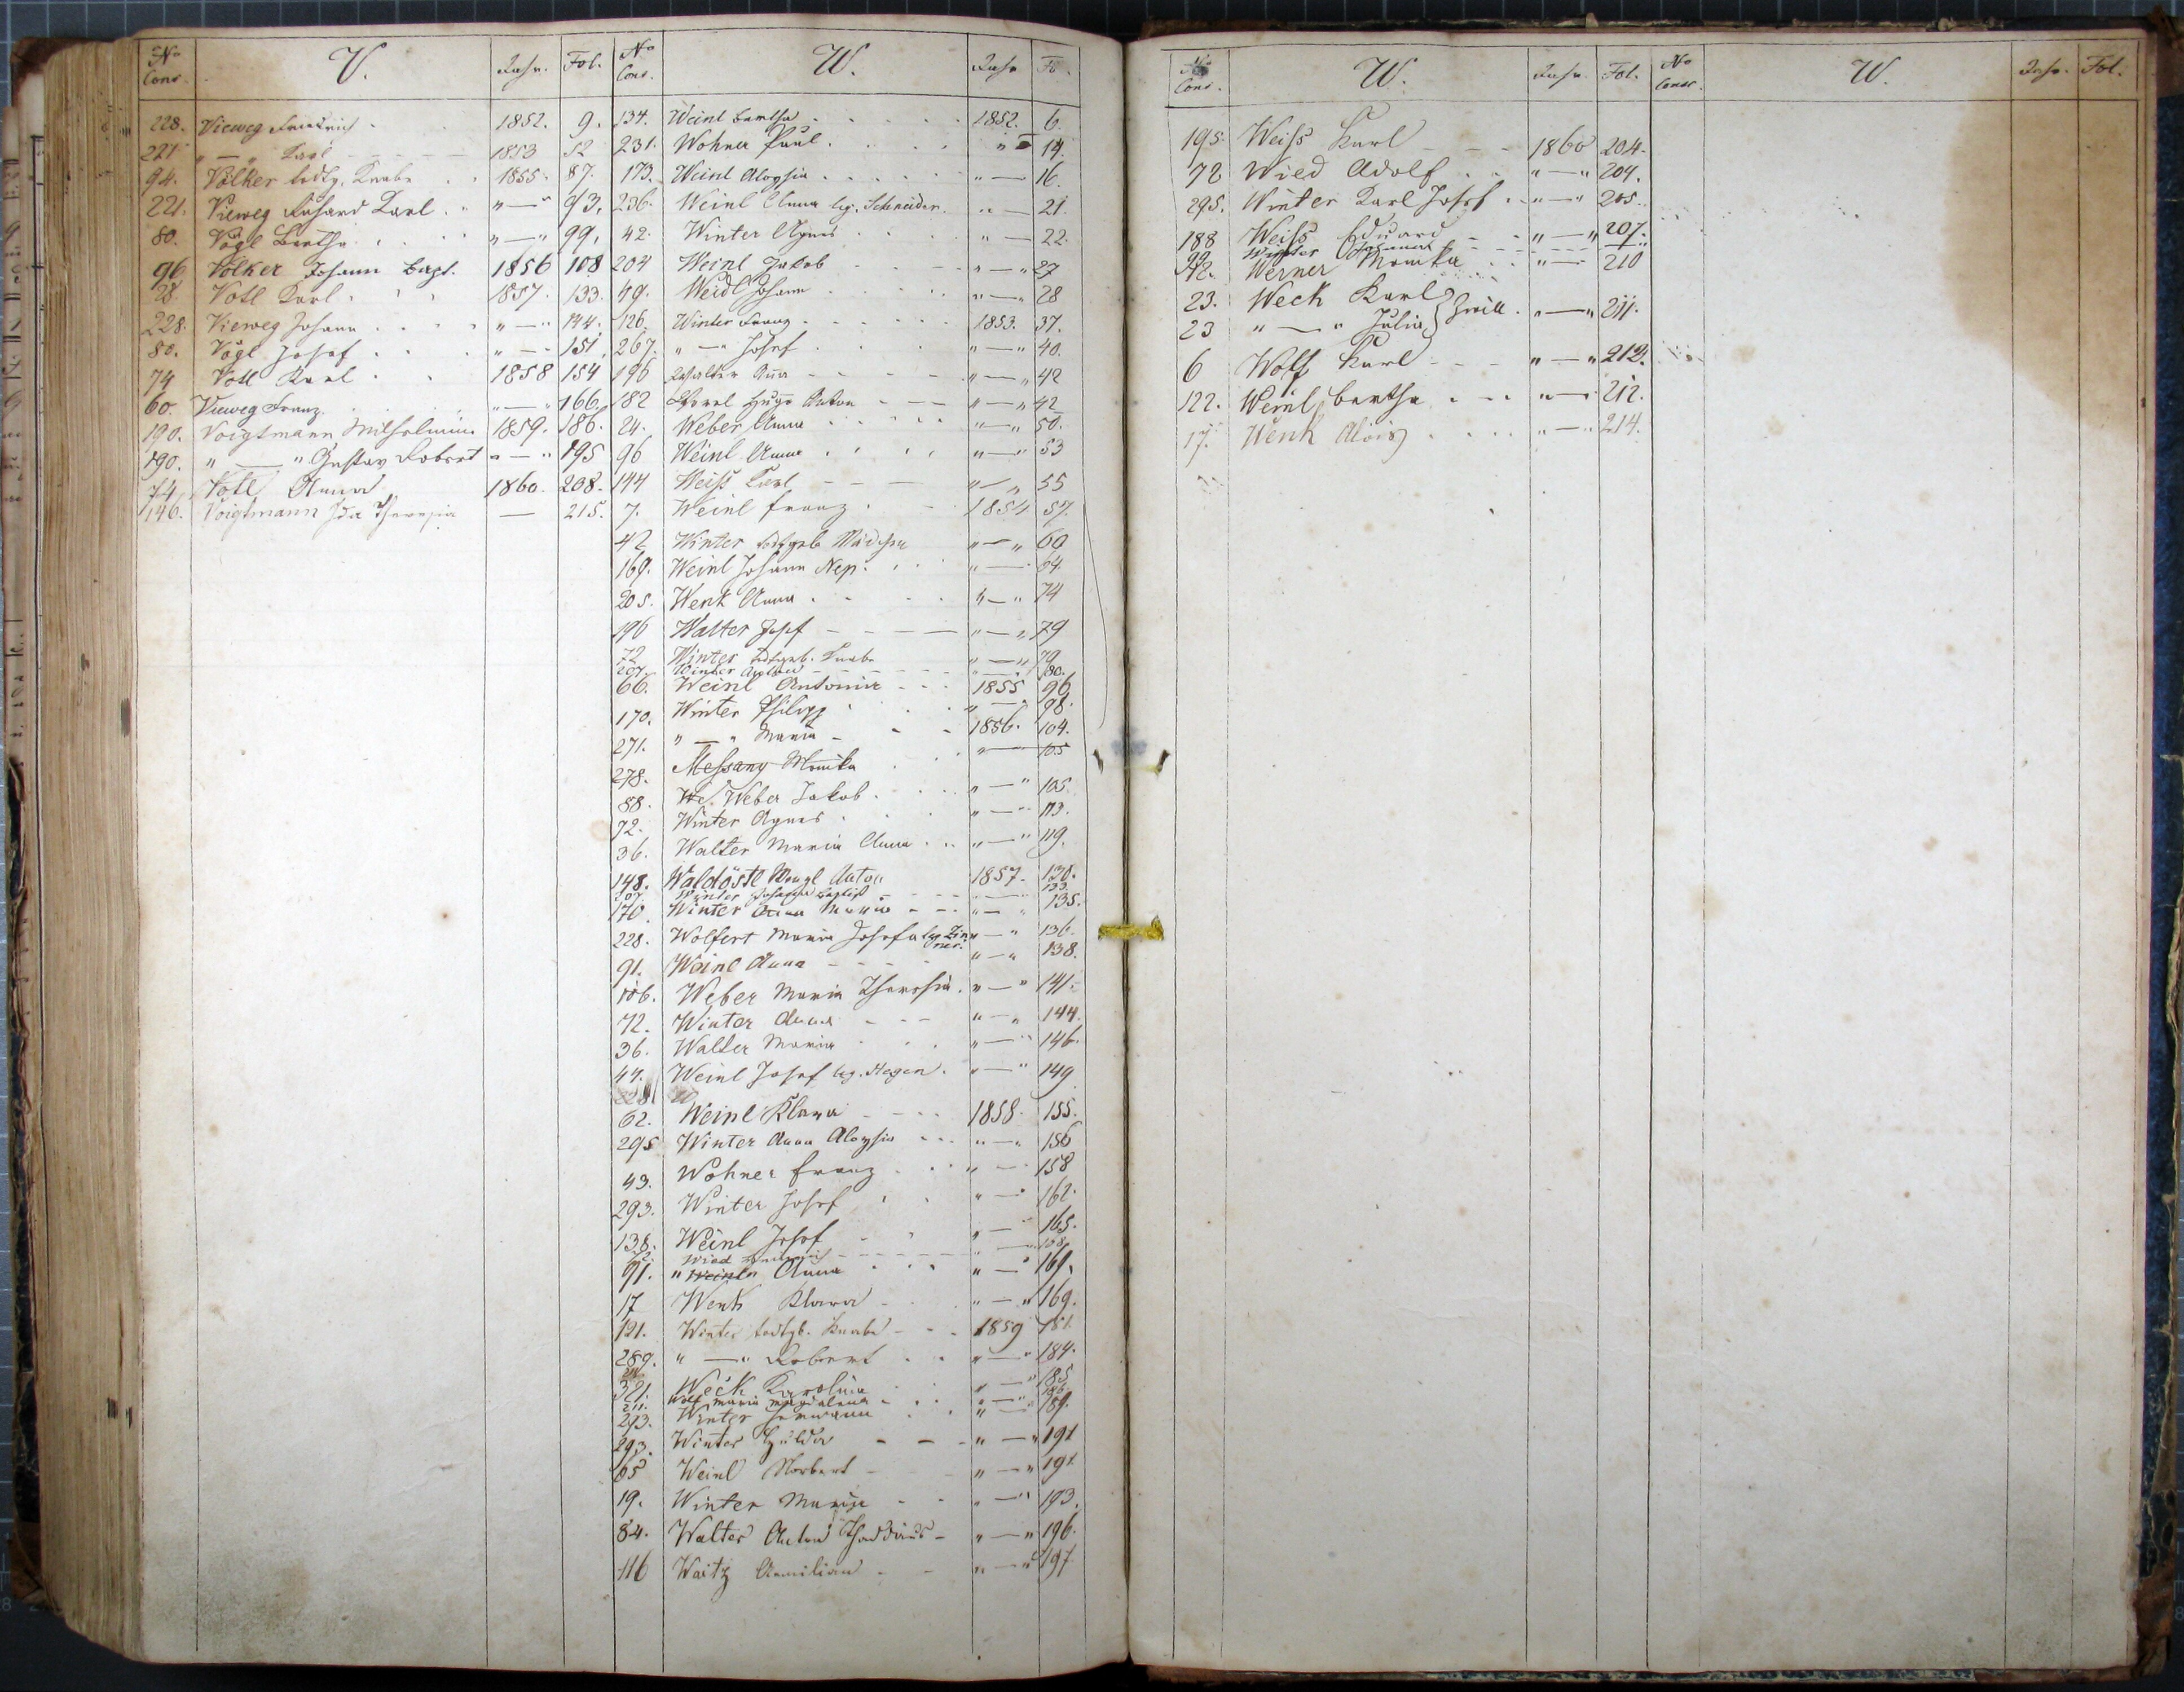 No Cons. V. Jahr. Fol.
228. Vieweg Friedrich 1852. 9.
221 " — " Karl 1853 52
94. Völker todtg. Knabe 1855. 87.
221. Vieweg Richard Karl " — " 93.
80. Vogl Bertha " — " 99.
96 Völker Johann Bapt. 1856 108
28. Votl Karl 1857. 133.
228. Vieweg Johann " — " 144.
80. Vogl Josef " — " 151
74 Votl Karl 1858 154
60. Vieweg Franz " — " 166.
190. Voigtmann Wilhelmine 1859. 186.
190. " — " Gustav Robert " — " 195
74 Votl Anna 1860. 208.
146. Voigtmann Ida Theresia — 215.
No Cons. W. Jahr Fo.
134. Weinl Bertha 1852. 6.
231. Wohner Paul " — 14.
173. Weinl Aloysia " — 16.
236. Weinl Anna leg. Schneider " — 21.
42. Winter Agnes " — 22.
204 Weinl Jakob " — " 27
49. Weidl Johann " — " 28
126. Winter Franz 1853. 37.
267. " — " Josef " — " 40.
196 Walter Anna " — " 42
182 Hugo Anton " — " 42
24. Weber Anna " — " 50.
96 Weinl Anna " — " 53
144 Weiß Karl " — " 55
7. Weinl Franz 1854 57.
42 Winter todtgeb. Mädchen " — " 60
169. Weinl Johann Nep. " — 64.
205. Wenk Anna " — " 74
196 Walter Josef " — " 79
72 Winter todtgeb. Knabe " — " 79
207. Winter " — " 80.
66. Weinl Antonia 1855 96
170. Winter Philipp " — " 98.
271. " — " Maria 1856. 104.
278. Messany Monika " — 105
88. We. Weber Jakob " — " 105.
72. Winter Agnes " — " 113.
36. Walter Maria Anna " — " 119.
148. Waldöstl Wenzl Anton 1857. 130.
207. Winter Johann Baptist 133.
170. Winter Anna Maria " — " 135.
228. Wolfert Maria Josefa leg. Zinner. " — " 136.
91. Weinl Anna " — " 138.
106. Weber Maria Theresia. " — " 141.
72. Winter Anna " — " 144.
36. Walter Maria " — " 146.
47. Weinl Josef leg. Hagen. " — " 149
62. Weinl Klara 1858. 155.
295 Winter Anna Aloysia " — " 156
43. Wohner Franz " — " 158
293. Winter Josef " — " 162.
138. Weinl Josef " — " 165.
Wied Heinrich
91. " Weinl " Anna " — " 169.
17 Wenk Klara " — " 169.
121. Winter todtgb. Knabe 1859 181.
289. " — " Robert " — " 184.
321. Weck Karolina " — " 185
211. Wolf Maria Magdalena " — " 186.
293. Winter Hermann " — " 189.
293. Winter Hulda " — " 191
65 Weinl Norbert " — " 191
19. Winter Maria " — " 193.
84. Walter Anton Thaddäus " — " 196.
116 Waitz Aemilian " — " 197
No Cons. W. Jahr. Fol.
195. Weiß Karl 1860 204.
72 Wied Adolf " — " 204.
295. Winter Karl Josef " — " 205.
188 Weiß Eduard " — " 207.
Winter Johanna
72. Werner Monika " — 210
23. Weck Karl } Zwill. " — " 211.
23 " — " Julia }
6 Wolf Karl " — " 212.
122. Weinl Bertha " — " 212.
17. Wenk Alois " — " 214.
No Conscr. W. Jahr. Fol.